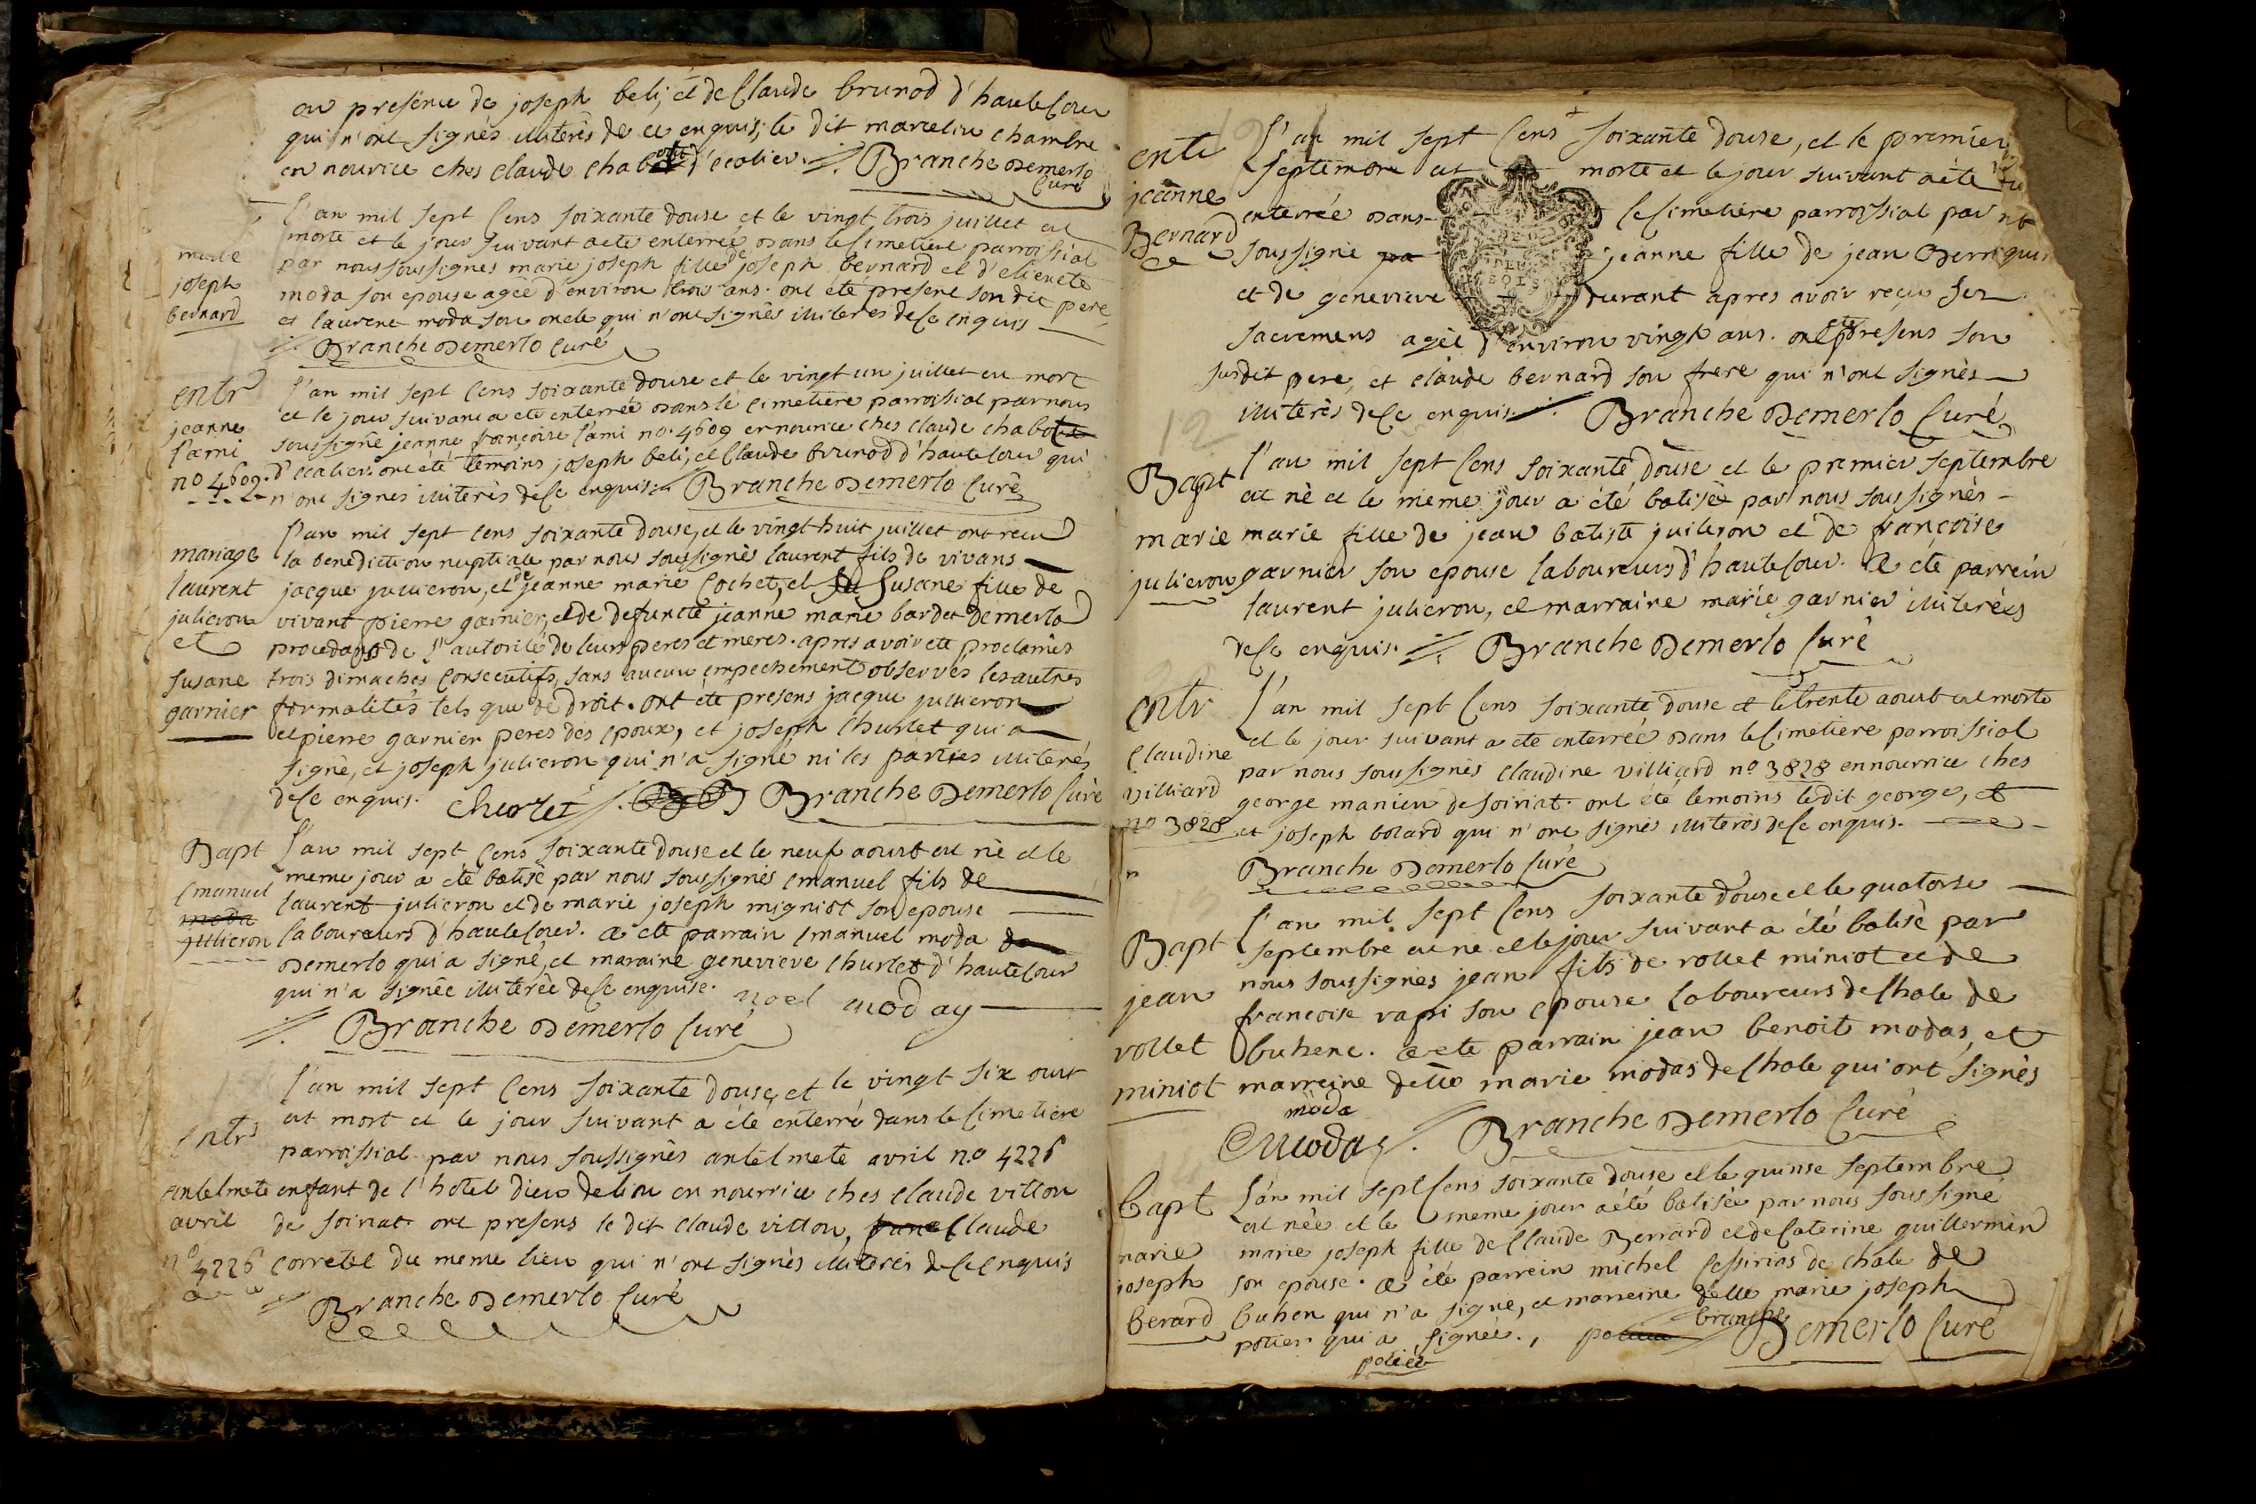 en presence de joseph beli, et de Claude brunod d'hautecour
qui n'ont signés illiterés de ce enquis; le dit marcelin chambre
en nourice ches claude chabot d'ecolier. Branche Demerlo
Curé
L'an mil sept Cens soixante douse et le vingt trois juillet est
morte et le jour suivant a eté enterreé dans le Cimetiere parroissial
marie
par nous soussignes marie joseph fille de joseph bernard et d'
joseph
moda son epouse ageé d'environ trois ans. ont eté present son dit pere
bernard
et laurent moda son oncle qui n'ont signés illiteres de Ce enquis
Branche Demerlo Curé
entr
L'an mil sept Cens soixante douse et le vingt un juillet est mort
et le jour suivant a eté enterreé dans le cimetiere parroissial par nous
jeanne
soussigné jeanne françoise l'ami no. 4609 en nourrice ches claude chabot
l'ami
no 4609.
d'ecolier. ont été temoins joseph beli, et Claude brunod d'hautecour qui
n'ont signes illiterés de Ce enquis. Branche Demerlo Curé
L'an mil sept Cens soixante douse, et le vingt huit juillet ont recu
mariage
la benediction nuptiale par nous soussignés laurent fils de vivans
laurent
jacque julieron, et de jeanne marie Cochet, et Susane fille de
julieron
vivant pierre garnier, et de defuncte jeanne marie bardet Demerlo
et
procedans de l'autorité de leurs peres et meres. apres avoir eté proclamés
susane
trois dimaches Consecutifs, sans aucun empechement observés les autres
garnier
formalités tels que de droit. ont été presens jacque julieron
et pierre garnier peres des epoux, et joseph Churlet qui a
signé, et joseph julieron qui n'a signé ni les parties illiterés
de Ce enquis. Churlet Branche Demerlo Curé
Bapt
L'an mil sept Cens soixante douse et le neuf aoust est né et le
meme jour a eté batisé par nous soussignés emanuel fils de
emanuel
moda
laurent julieron et de marie joseph migniot son epouse
julieron
laboureurs d'hautecour. a eté parrain emanuel moda de
Demerlo qui a signé, et maraine genevieve Churlet d'hautecour
qui n'a signée illiterée de Ce enquise. noel moday
Branche Demerlo Curé
L'an mil sept Cens soixante douse, et le vingt six out
entr
est mort et le jour suivant a été enterré dans le Cimetiere
parroissial par nous soussignés antelmete avril no 4226
antelmete
enfant de l'hotel dieu de lion en nourrice ches claude vitton
avril
de soiriat. ont presens le dit claude vitton, Claude
no 4226
corretel du meme lieu qui n'ont signés illiterés de Ce enquis
Branche Demerlo Curé
ente
L'an mil sept Cens soixante douse, et le premier
septembre est morte et le jour suivant a été
jeanne
enterrée dans le Cimetiere parroissial par
Bernard
soussigné jeanne fille de jean
et de genevieve durant apres avoir reçu ses
sacremens ageé d'environ vingt ans. ont été presens son
susdit pere, et claude bernard son frere qui n'ont signés
illiterés de Ce enquis. Branche Demerlo Curé
L'an mil sept Cens soixante douse et le premier septembre
Bapt
est né et le meme jour a été batisé par nous soussignés
marie
marie fille de jean batiste julieron et de françoise
julieron
garnier son epouse laboureurs d'hautecour. a été parrein
laurent julieron, et marraine marie garnier illiterées
de Ce enquis. Branche Demerlo Curé
entr
L'an mil sept Cens soixante douse et le trente aoust est morte
et le jour suivant a eté enterreé dans le Cimetiere parroissial
Claudine
par nous soussignés Claudine villiard no 3828 en nourrice ches
villiard
george manieu de soiriat. ont été temoins ledit george, et
no 3828
et joseph bolard qui n'ont signés illiterés de Ce enquis.
Branche Demerlo Curé
L'an mil sept Cens soixante douse et le quatorse
Bapt
septembre est né et le jour suivant a été batisé par
nous soussignés jean fils de rollet miniot et de
jean
francoise son epouse laboureurs de Chale de
rollet
buhenc. a eté parrain jean benoit modas, et
miniot
marreine delle marie modas de Chale qui ont signés
moda
Moda Branche Demerlo Curé
bapt
L'an mil sept Cens soixante douse et le quinse septembre
est née et le meme jour a été batisée par nous soussigné
marie
marie joseph fille de Claude Berrard et de Caterine guillermin
joseph
son epouse. a été parrein michel de chale de
berard
buhen qui n'a signé, et marreine delle marie joseph
potier qui a signée. branche Demerlo Curé
potier